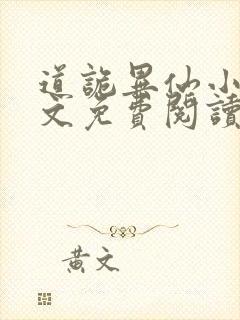 道詭異仙小
文免費閱讀
黃文